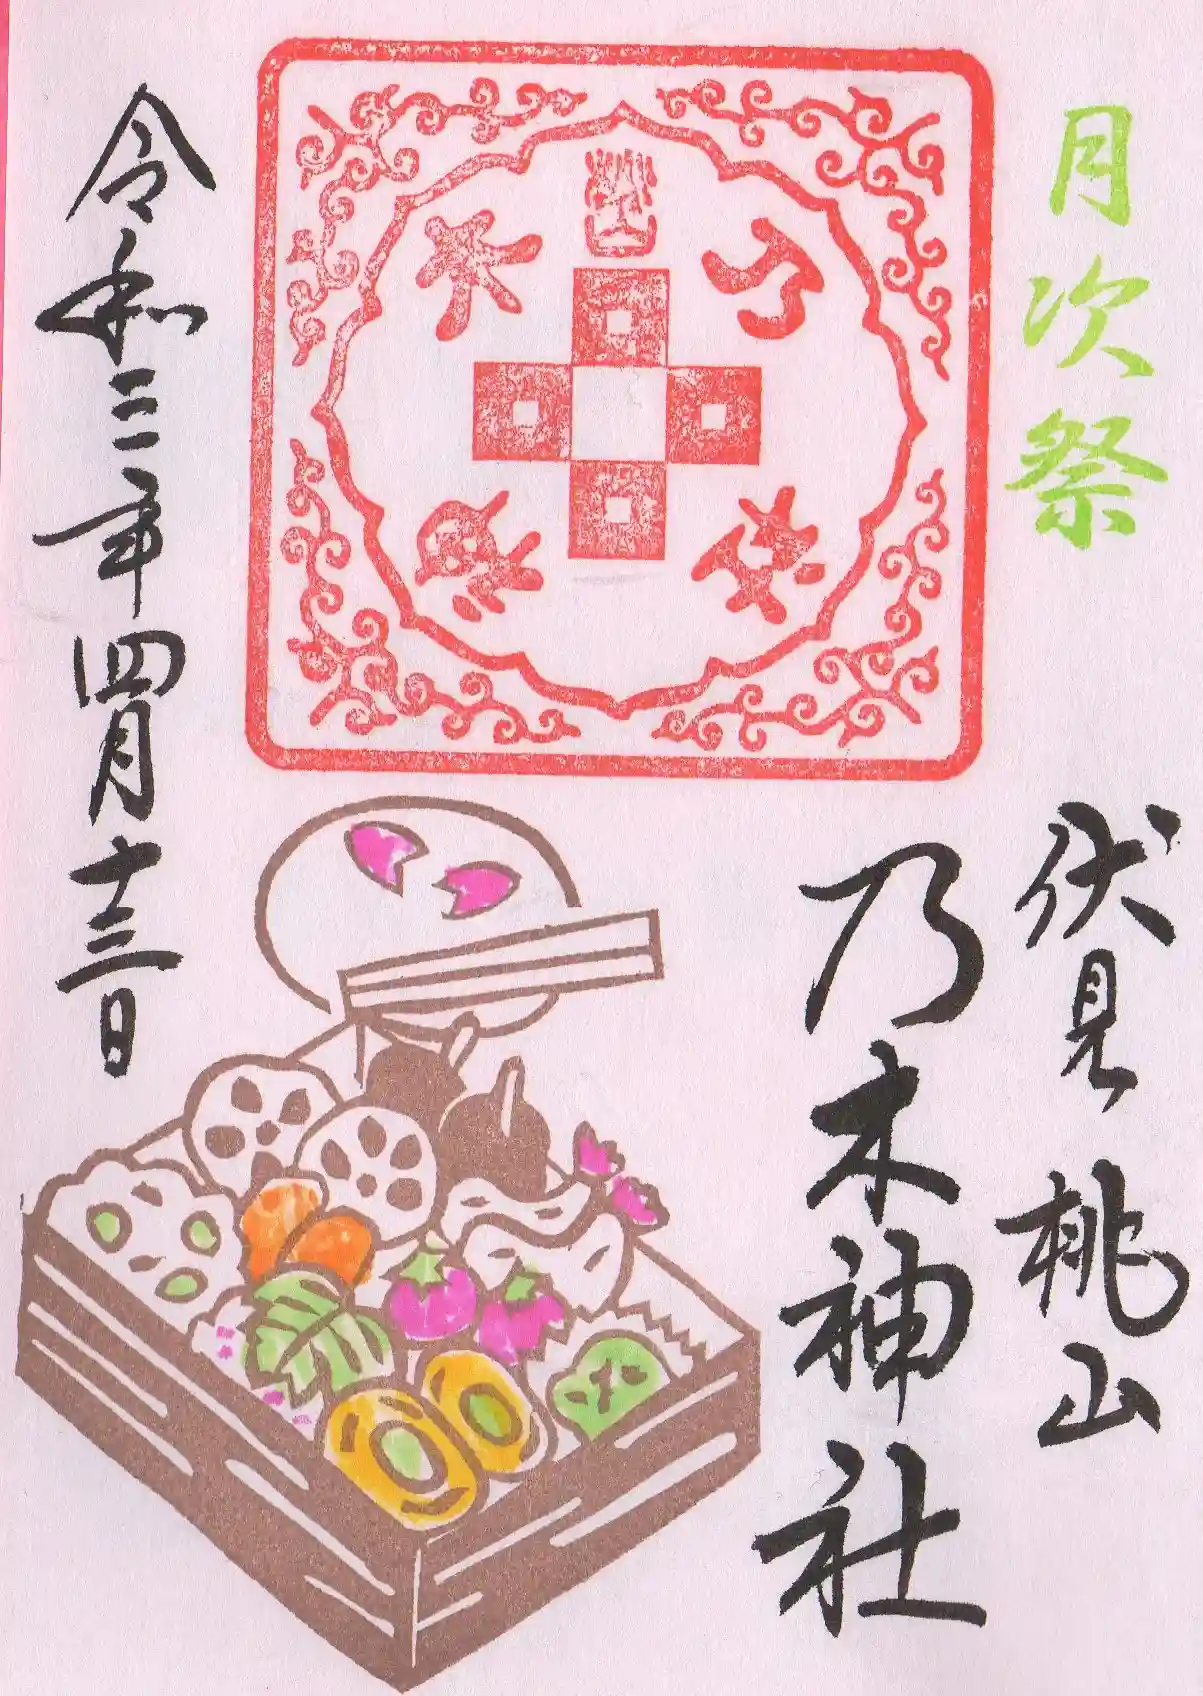 月次祭
伏見桃山
乃木神社
乃木
令和三年四月十三日